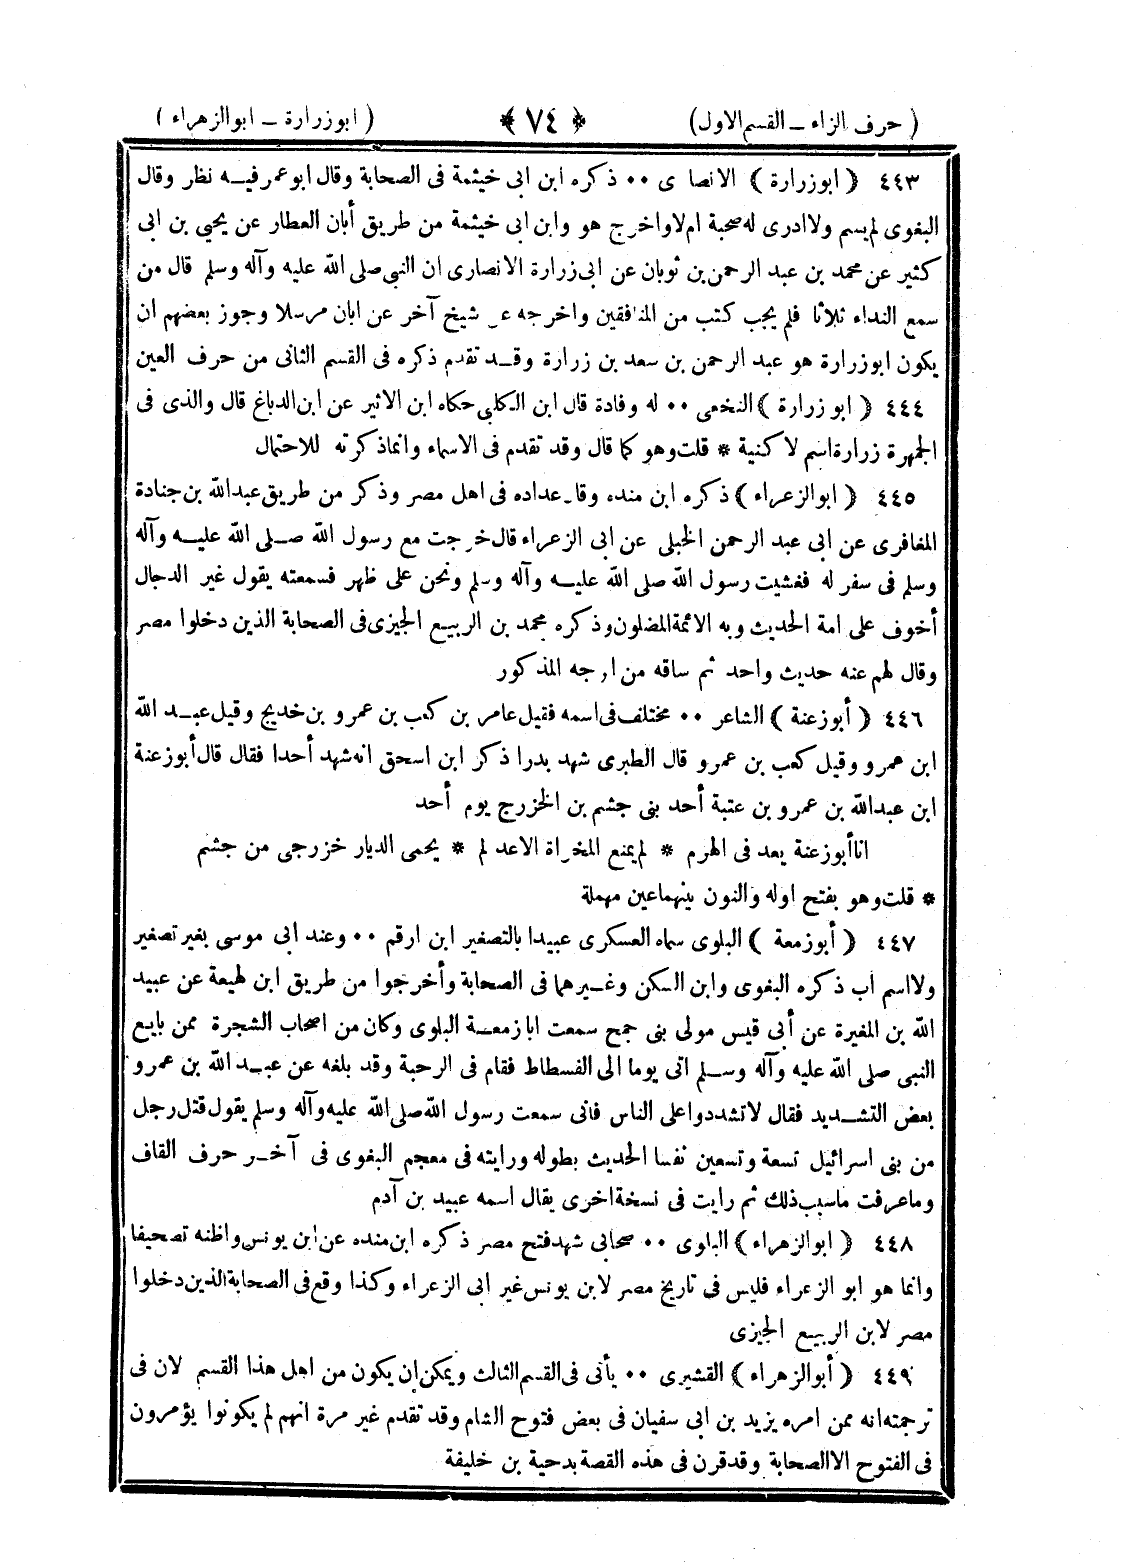 ( حرف الزاء ــ القسم الاول) ﴿ ٧٤ ﴾ ( ابوزرارة ــ ابوالزهراء )
٤٤٣ ( ابوزرارة ) الانصا ى ٠٠ ذكره ابن ابى خيثمة فى الصحابة وقال ابوعمر فيـه نظر وقال
البغوى لم يسم ولاادرى له صحبة ام لاواخرج هو وابن ابى خيثمة من طريق أبان العطار عن يحيى بن ابى
كثير عن محمد بن عبد الرحمن بن ثوبان عن ابى زرارة الانصارى ان النبى صلى الله عليه وآله وسلم قال من
سمع النداء ثلاثا فلم يجب كتب من المنافقين واخرجه عـ شيخ آخر عن ابان مرسلا وجوز بعضهم ان
يكون ابوزرارة هو عبد الرحمن بن سعد بن زرارة وقـد تقدم ذكره فى القسم الثانى من حرف العين
٤٤٤ ( ابو زرارة ) النخعى ٠٠ له وفادة قال ابن الكلبى حكاه ابن الاثير عن ابن الدباغ قال والذى فى
الجمهرة زرارة اسم لا كنية * قلت وهو كما قال وقد تقدم فى الاسماء وانماذكرته للاحتمال
٤٤٥ ( ابوالزعراء ) ذكره ابن منده وقا عداده فى اهل مصر وذكر من طريق عبدالله بن جنادة
المغافرى عن ابى عبد الرحمن الحبلى عن ابى الزعراء قال خرجت مع رسول الله صـلى الله عليـه وآله
وسلم فى سفر له فغشيت رسول الله صلى الله عليـه وآله وسلم ونحن على ظهر فسمعته يقول غير الدجال
أخوف على امة الحديث وبه الائمة المضلون وذكره محمد بن الربيع الجيزى فى الصحابة الذين دخلوا مصر
وقال لهم عنه حديث واحد ثم ساقه من ارجه المذكور
٤٤٦ ( أبوزعنة ) الشاعر ٠٠ مختلف فى اسمه فقيل عامر بن كعب بن عمرو بن خديج وقيل عبـد الله
ابن عمرو وقيل كعب بن عمرو قال الطبرى شهد بدرا ذكر ابن اسحق انه شهد أحدا فقال قال أبوزعنة
ابن عبدالله بن عمرو بن عتبة أحد بنى جشم بن الخزرج يوم أحد
انا أبوزعنة يعد فى الهرم * لم يمنع المخراة الاعد لم * يحمى الديار خزرجى من جشم
* قلت وهو بفتح اوله والنون بينهما عين مهملة
٤٤٧ ( أبوزمعة ) البلوى سماه العسكرى عبيدا بالتصغير ابن ارقم ٠٠ وعند ابى موسى بغير تصغير
ولااسم اب ذكره البغوى وابن السكن وغـيرهما فى الصحابة وأخرجوا من طريق ابن لهيعة عن عبيد
الله بن المغيرة عن أبى قيس مولى بنى جمح سمعت ابا زمعـة البلوى وكان من اصحاب الشجرة ممن بايع
النبى صلى الله عليه وآله وسـلم اتى يوما الى الفسطاط فقام فى الرحبة وقد بلغه عن عبـد الله بن عمرو
بعض التشـديد فقال لاتشددوا على الناس فانى سمعت رسول الله صلى الله عليه وآله وسلم يقول قتل رجل
من بنى اسرائيل تسعة وتسعين نفسا الحديث بطوله ورايته فى معجم البغوى فى آخـر حرف القاف
وماعرفت ماسبب ذلك ثم رايت فى نسخة اخرى يقال اسمه عبيد بن آدم
٤٤٨ ( ابوالزهراء ) البلوى ٠٠ صحابى شهد فتح مصر ذكره ابن منده عن ابن يونس واظنه تصحيفا
وانما هو ابو الزعراء فليس فى تاريخ مصر لابن يونس غير ابى الزعراء وكذا وقع فى الصحابة الذين دخلوا
مصر لابن الربيع الجيزى
٤٤٩ ( أبوالزهراء ) القشيرى ٠٠ يأتى فى القسم الثالث ويمكن ان يكون من اهل هذا القسم لان فى
ترجمته انه ممن امره يزيد بن ابى سفيان فى بعض فتوح الشام وقد تقدم غير مرة انهم لم يكونوا يؤمرون
فى الفتوح الا الصحابة وقد قرن فى هذه القصة بدحية بن خليفة